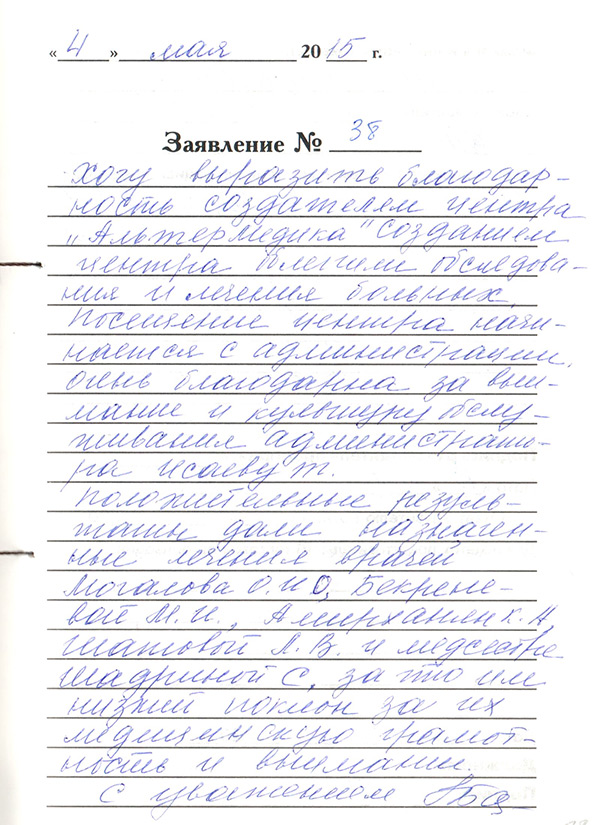 « 4 » мая 2015 г.
Заявление № 38
Хочу выразить благодар-
ность создателем центра
„Альтермедика" созданием
центра облегчили обследова-
ния и лечения больных.
Посещение центра начи-
нается с администрации.
очень благодарна за вни-
мание и культуру обслу-
живания администрато-
ра Исаеву Т.
положительные резуль-
таты дали назначен-
ные лечения врачей
Мочалова О.И О, Бекрене-
вой М.И., Амирханян К. Н,
Шатовой Л. В. и медсестре
Шадриной С, за что им
низкий поклон за их
медицинскую грамот-
ность и внимании.
С уважением